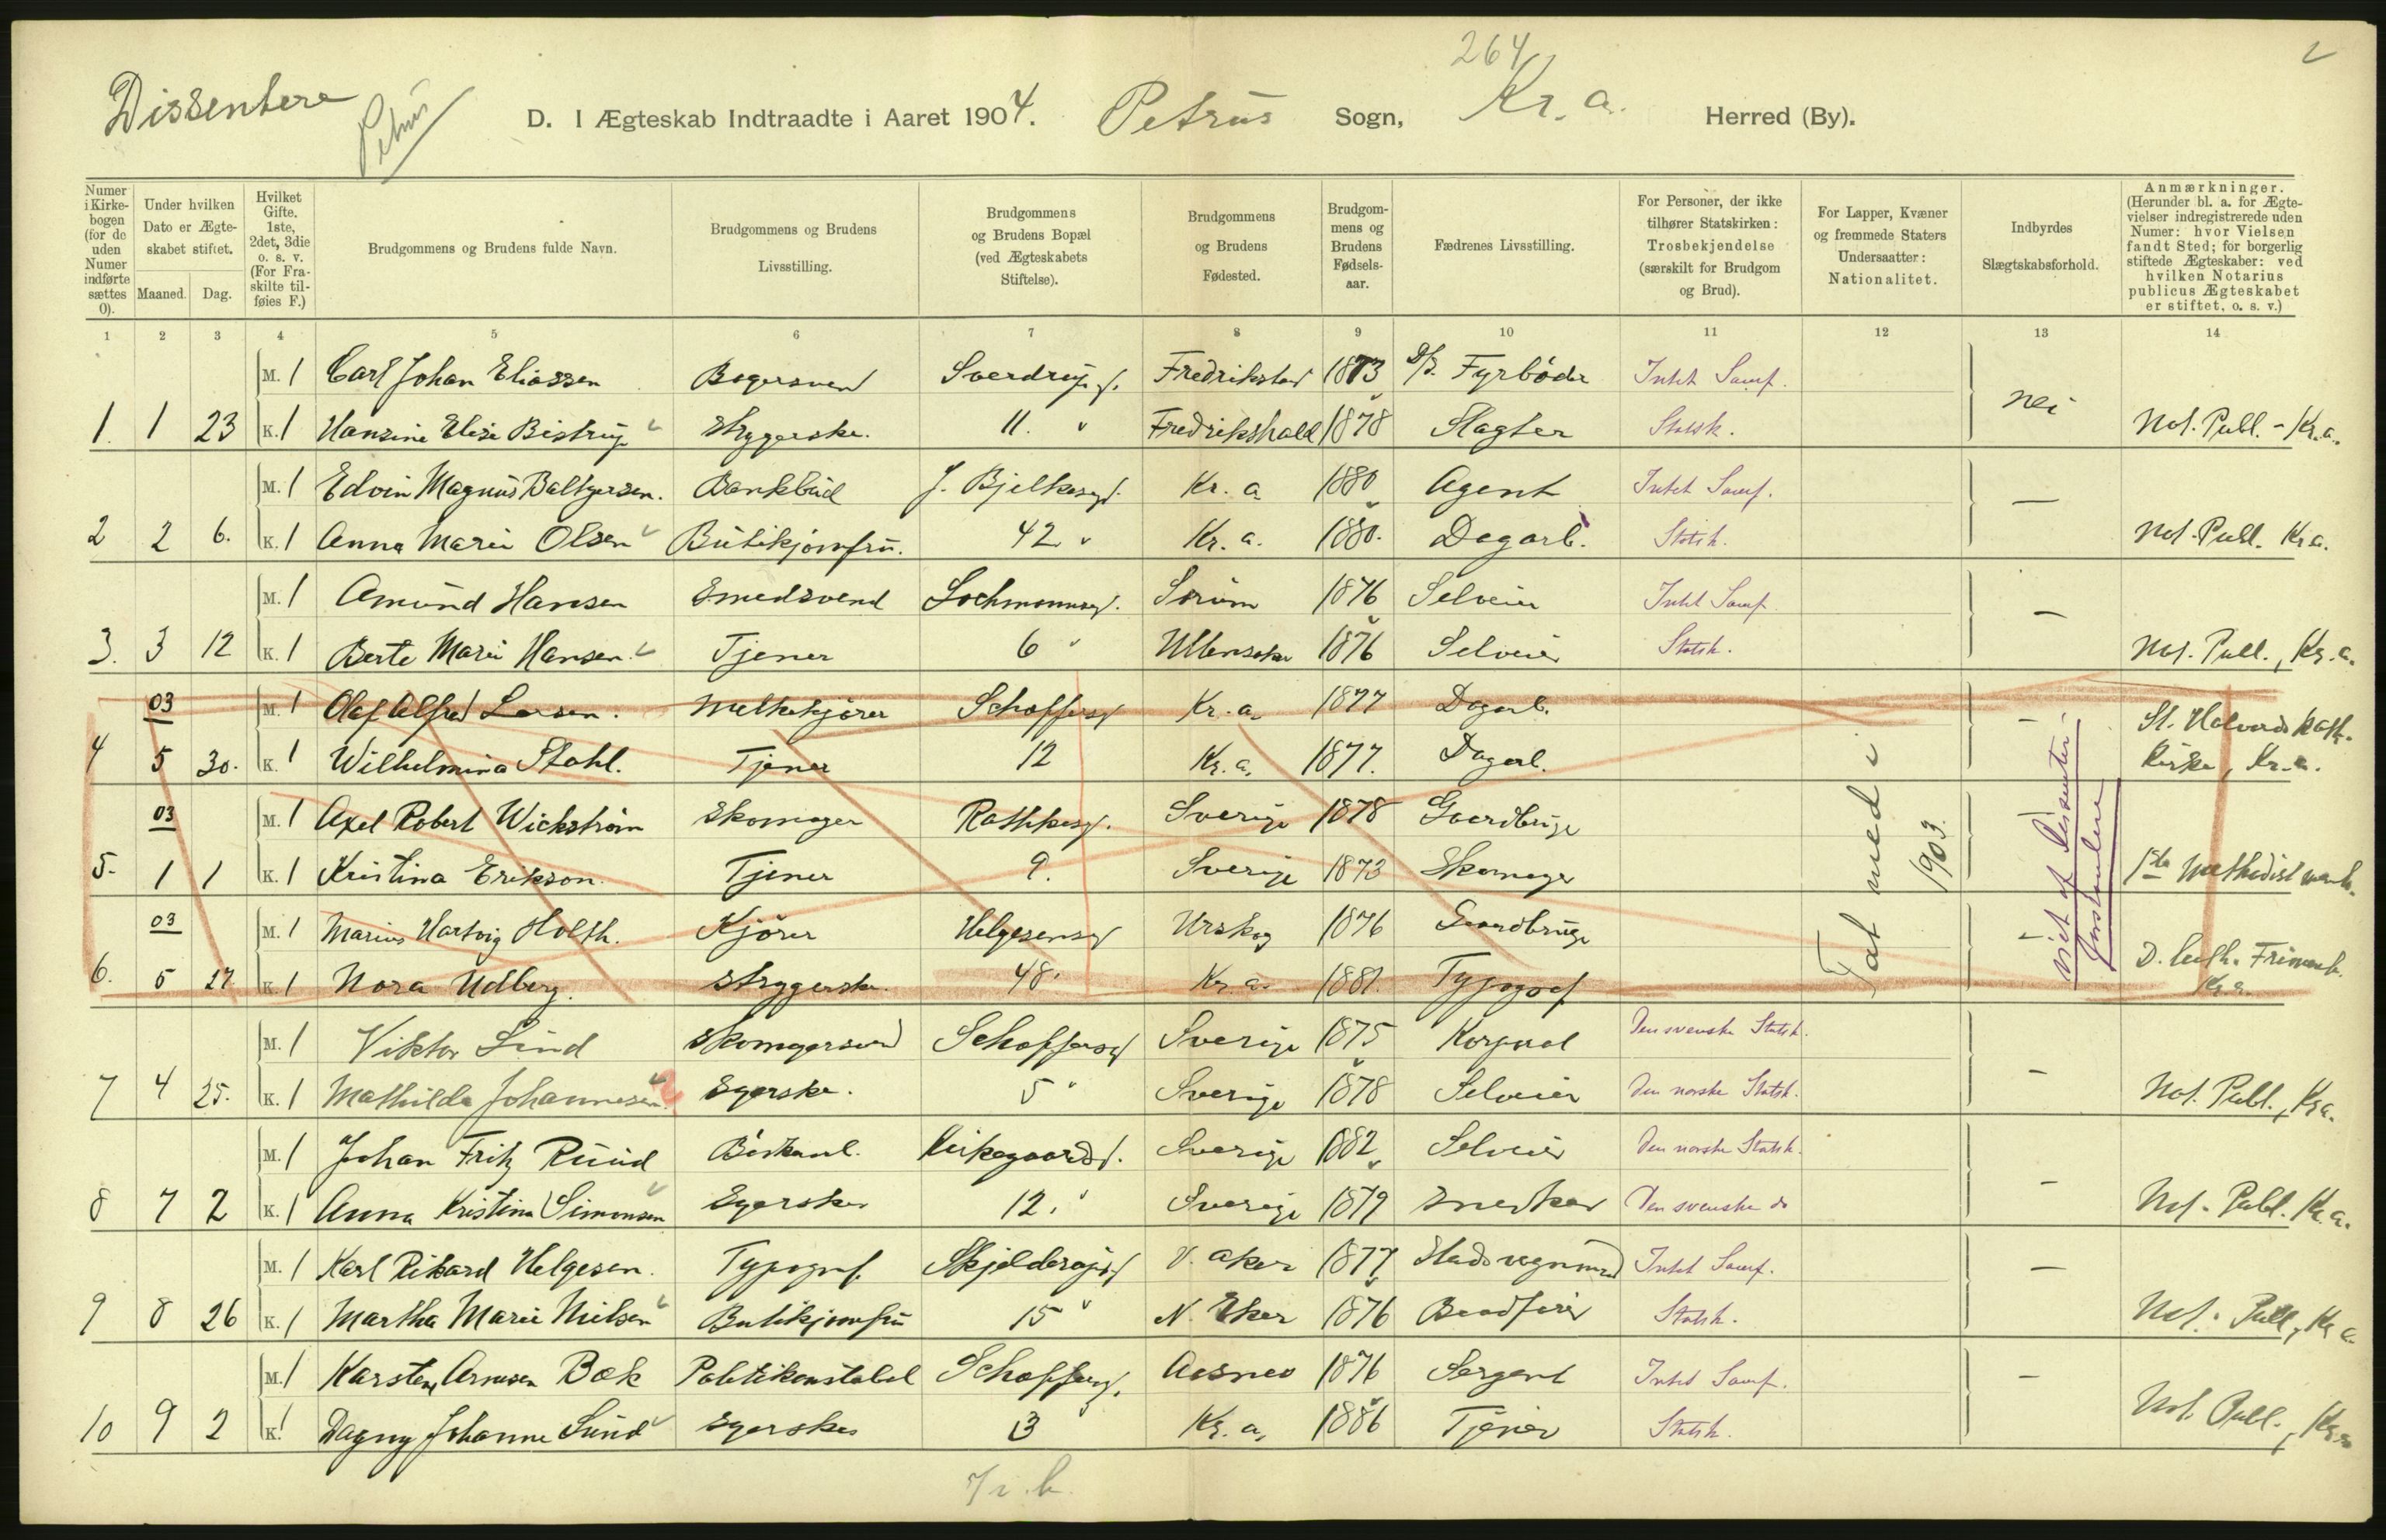 264
2
Dissentere
Petrus
D. I Ægteskab Indtraadte i Aaret 1904. Petrus Sogn, Kr. a. Herred (By).
Numer i Kirkebogen (for de uden Numer indførte sættes 0).
Under hvilken Dato er Ægteskabet stiftet.
Maaned. Dag.
Hvilket Gifte. 1ste, 2det, 3die o. s. v. (For Fraskilte tilføies F.)
Brudgommens og Brudens fulde Navn.
Brudgommens og Brudens Livsstilling.
Brudgommens og Brudens Bopæl (ved Ægteskabets Stiftelse).
Brudgommens og Brudens Fødested.
Brudgommens og Brudens Fødselsaar.
Fædrenes Livsstilling.
For Personer, der ikke tilhører Statskirken: Trosbekjendelse (særskilt for Brudgom og Brud).
For Lapper, Kvæner og fremmede Staters Undersaatter: Nationalitet.
Indbyrdes Slægtskabsforhold.
Anmærkninger. (Herunder bl. a. for Ægtevielser indregistrerede uden Numer: hvor Vielsen fandt Sted; for borgerlig stiftede Ægteskaber: ved hvilken Notarius publicus Ægteskabet er stiftet, o. s. v.)
1 2 3 4 5 6 7 8 9 10 11 12 13 14
M. 1 Carl Johan Eliassen Bagersvend Sverdrupsg. Fredrikstad 1873 Fyrbøder Intet Samf. nei
1. 1 23 K. 1 Hansine Elise Bistrup Strygerske. 11. Fredrikshald 1878 Slagter Statsk. Not. Publ. - Kr.a.
M. 1 Edvin Magnus Baltzersen. Bankbud J. Bjelkesgd. Kr. a 1880 Agent Intet Samf. —
2 2 6. K. 1 Anna Marie Olsen Butikjomfru. 42 Kr. a. 1880. Dagarb. Statsk. Not. Publ. Kr a.
M. 1 Amund Hansen Smedsvend Lochmannsgd. Sørum 1876 Selveier Intet Samf. —
3. 3 12 K. 1 Berte Marie Hansen. Tjener 6 Ullensaker 1876 Selveier Statsk. Not. Publ., Kr.a.
03 M. 1 Olaf Alfred Larsen. Melkekjører Schoffersgd Kr. a. 1877 Dagarb. — St. Halvards kath.
4 5 30. K. 1 Wilhelmina Stahl. Tjener 12 Kr. a. 1877. Dagarb. Kirke, Kr.a.
03 M. 1 Axel Robert Wickstrøm Skomager Rathkesgd. Sverige 1878 Gaardbruger
5. 1 1 K. 1 Kristina Erikson. Tjener 9. Sverige 1873 Skomager 1ste Methodist menh.
03 M. 1 Marius Hartvig Holth. Kjører Helgesensgd Urskog 1876 Gaardbruger — D. luth. Frimenh.
6. 5 27. K. 1 Nora Udberg. Strygerske. 48. Kr. a. 1881. Typograf Kr.a.
Tat med i 1903.
vist af Dissenter-
M. 1 Viktor Lind Skomagersvend Schoffersgd Sverige 1875 Korporal Den svenske Statsk. —
7 4 25. K. 1 Mathilda Johannesen. Syerske. 5 Sverige 1878 Selveier Den norske Statsk. Not. Publ., Kr a.
M. 1 Johan Fritz Ruud Kirkegaardsgd. Sverige 1882 Selveier Den norske Statsk. —
8 7 2 K. 1 Anna Kristina Simonsen Syerske 12. Sverige 1879 Snedker Den svenske do Not. Publ. Kr.a.
M. 1 Karl Rikard Helgesen. Typograf. V. Aker 1877 Stadsvognmand Intet Samf. —
9 8 26 K. 1 Martha Marie Nielsen Butikjomfru 15 N. Eker 1876 Statsk. Not. Publ., Kr a.
M. 1 Karsten Arnesen Bæk Politikonstabel Schoffersgd. Aasnes 1876 Sergent Intet Samf. —
10 9 2 K. 1 Dagny Johanne Lund Syerske 3 Kr. a. 1886 Tjener Statsk. Not. Publ., Kr.a.